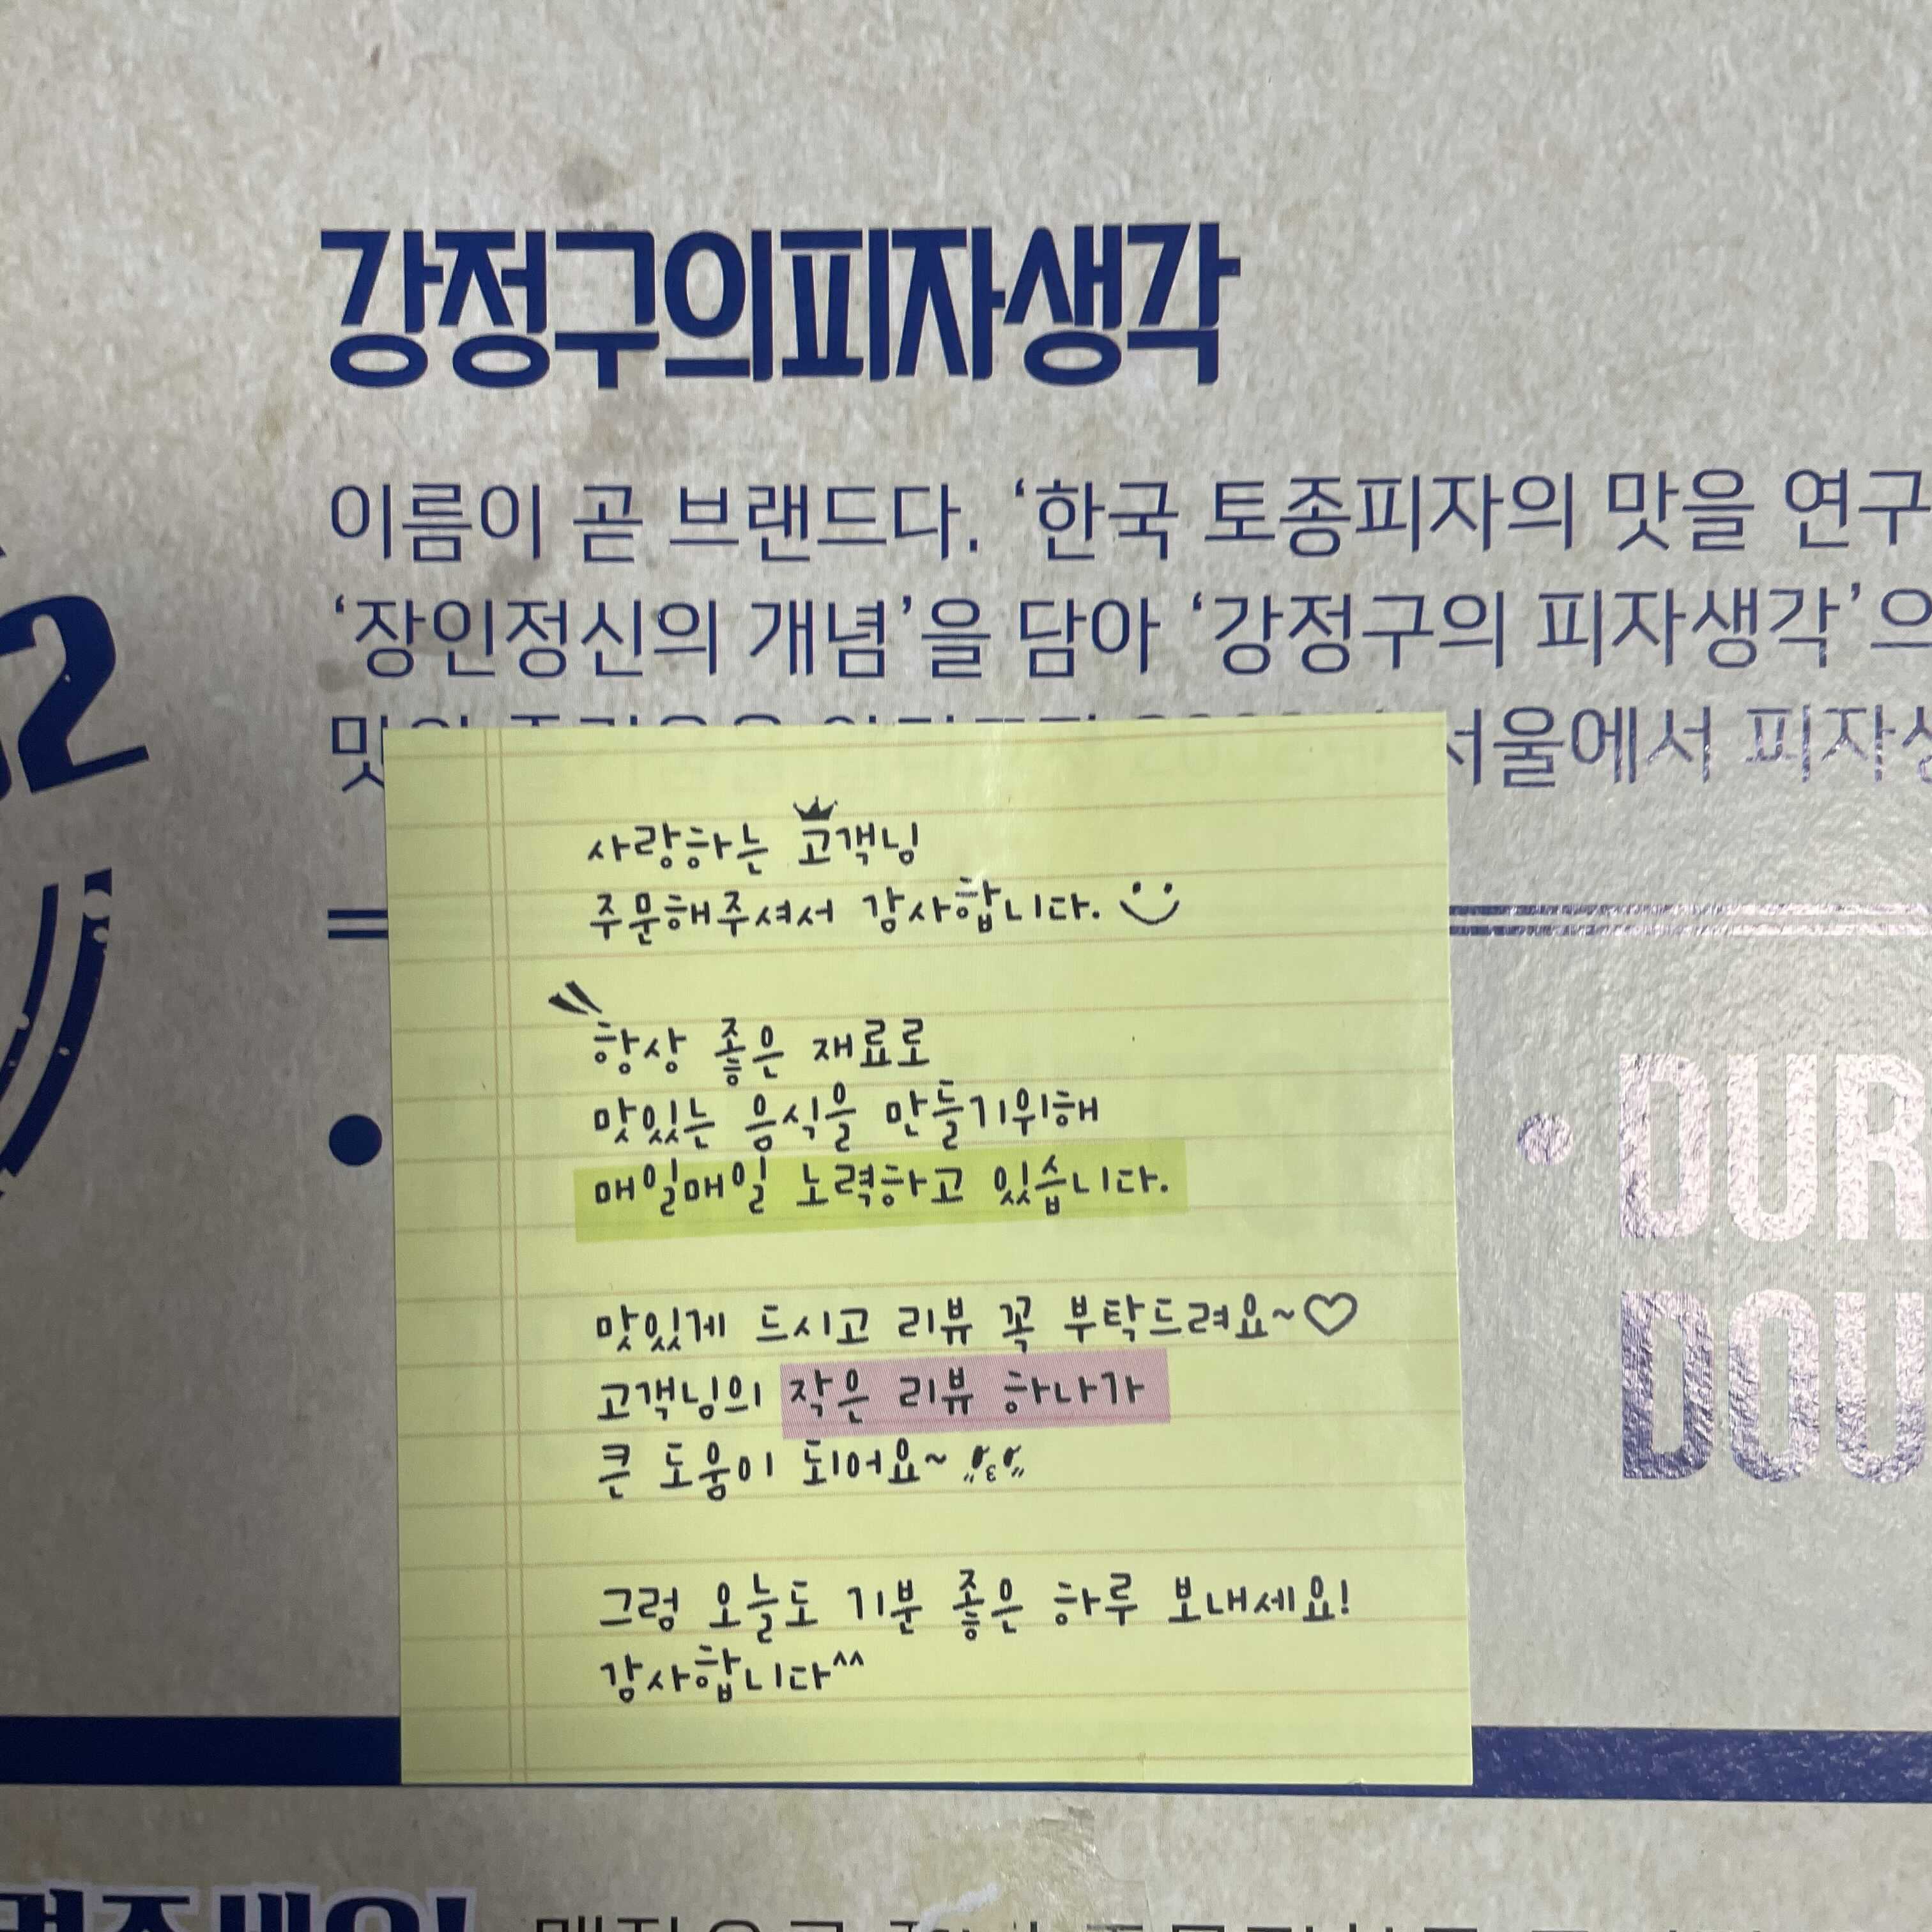 강정구의피자생각
이름이 곧 브랜드다. ‘한국 토종피자의 맛을 연구
‘장인정신의 개념’을 담아 ‘강정구의 피자생각’으
서울에서 피자생
사랑하는 고객님
주문해주셔서 감사합니다.
항상 좋은 재료로
맛있는 음식을 만들기위해
매일매일 노력하고 있습니다.
맛있게 드시고 리뷰 꼭 부탁드려요~♡
고객님의 작은 리뷰 하나가
큰 도움이 되어요~
그럼 오늘도 기분 좋은 하루 보내세요!
감사합니다^^
2
DUR
DOU